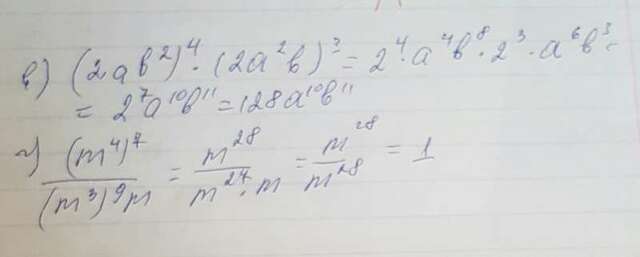 в) (2ab²)⁴·(2a²b)³=2⁴·a⁴b⁸·2³·a⁶b³=
=2⁷a¹⁰b¹¹=128a¹⁰b¹¹
г) (m⁴)⁷/(m³)⁹m = m²⁸/m²⁷·m = m²⁸/m²⁸ = 1